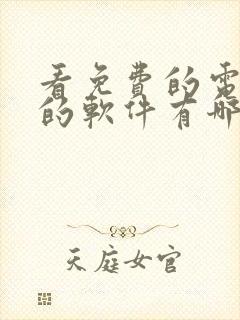 看免費的電
的軟件有哪
天庭女官